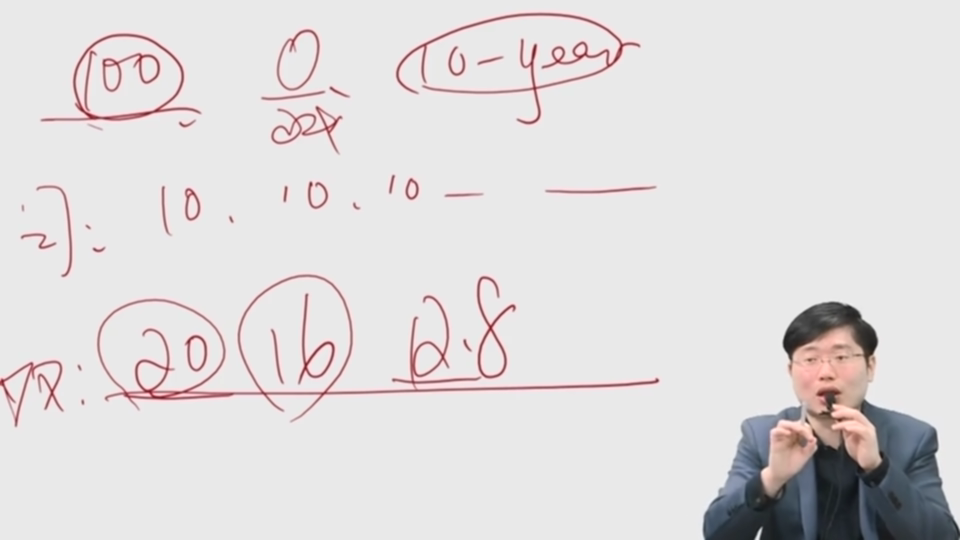 100 0 10-year
10. 10. 10 —
20 16 12.8